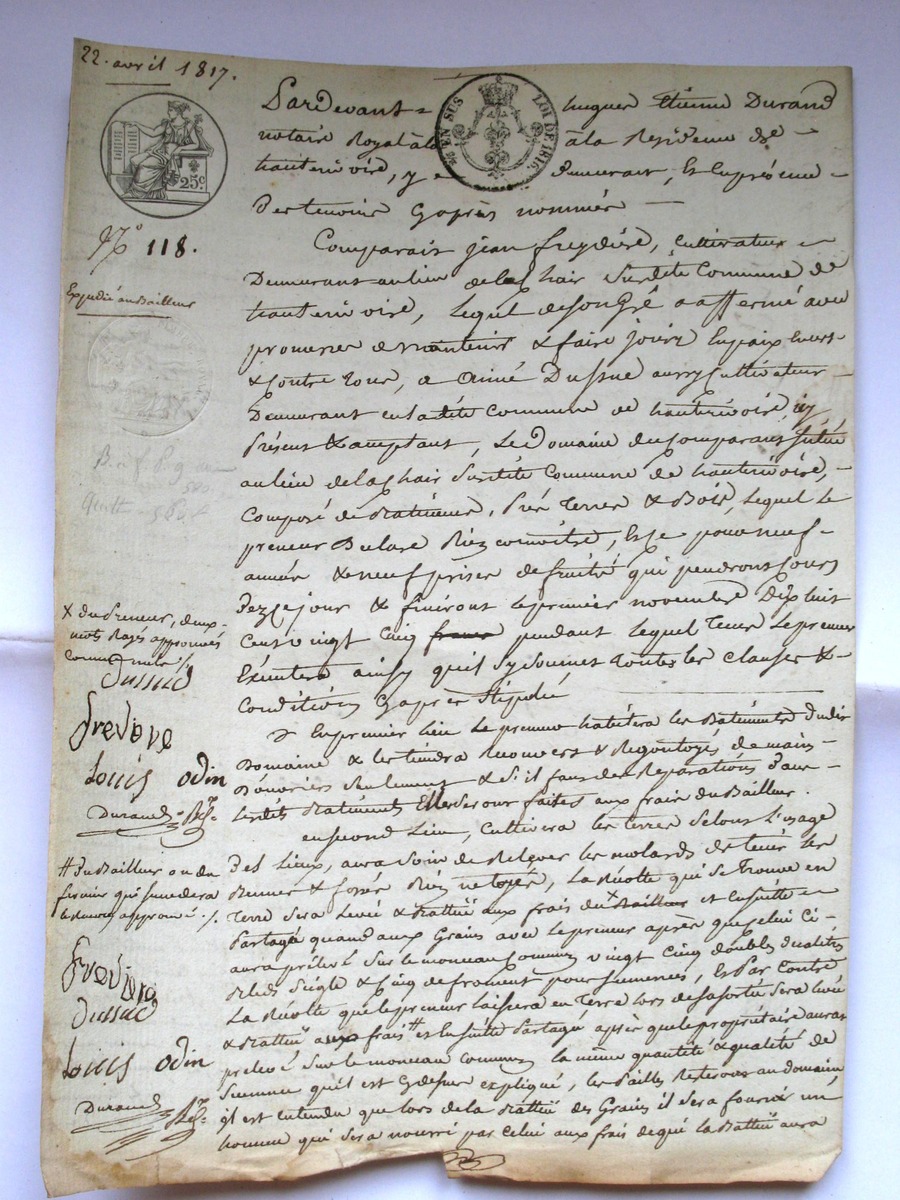 22. avril 1817.
25c
EN SUS LOI DE 1816.
Pardevant hugues étienne Durand
notaire Royal à la Residence de
hauterivoire, y demeurant, Et En présence
Des temoins Cyaprès nommés
N° 118.
Comparait jean freydiere, Cultivateur
Demeurant au lieu de la Chair Surdite Commune de
Expedié au Bailleur
hauterivoire, Lequel de son gré a affermé avec
promesse de maintenir & faire jouir En paix Envers
& Contre tous, a Aimé Dussud aussy Cultivateur
Demeurant en la dite Commune de hauterivoire, icy
Présent & acceptant, Le Domaine du Comparant Situé
au lieu de la Chair Susdite Commune de hauterivoire,
Composé de Batiments, Prés Terres & Bois, Lequel Le
preneur Declare Bien connoitre, Et ce pour neuf
années & neuf prises de fruits qui prendront Cours
Dez Ce jour & finiront Le premier novembre Dix huit
Cent vingt Cinq pendant Lequel Tems Le preneur
Exécutera ainsy qu'il S'y Soumet toutes les clauses &
Conditions Cyaprès Stipulés
X du preneur, deux
mots Rayés approuvés
Comme nuls /.
Dussud
freydiere
Louis odin
Durand
En premier lieu Le preneur habitera les Batiments dudit
Domaine & les tiendra Recouvers & Regoutoyés de mains
D'ouvriers Seulement & Si il faut des Reparations D'aux
dits Batiments Elles Seront faites aux frais du Bailleur.
en Second Lieu, Cultivera les terres Selons L'usage
Des Lieux, aura Soin de Relever les molards de tenir les
# du Bailleur ou du
fermier qui Succedera
le Renvoy approuvé /.
freydiere
Dussud
Louis odin
Durand
& fossés Bien netoyés, La Récolte qui Se Trouve en
Terre Sera Levée & Battüe aux frais du X Bailleur et Ensuite
Partagée quand aux Grains avec Le preneur après que Celui Ci
aura prélevé Sur le monceau Commun vingt Cinq doubles decalitres
Bled Seigle & Cinq de froment pour Semences, Et Par Contre
La Récolte que le preneur Laissera en Terre lors de Sa Sortie Sera Levée
& Battüe aux frais # et Ensuite Partagée après que le propriétaire aura
prelevé Sur le monceau commun La même quantité & qualité de
Semence qu'il est Cydessus expliqué, les Pailles Resteront au domaine
il est entendu que lors de la Battüe des Grains il Sera fourni un
homme qui Sera nourri par Celui aux frais de qui La Battüe aura